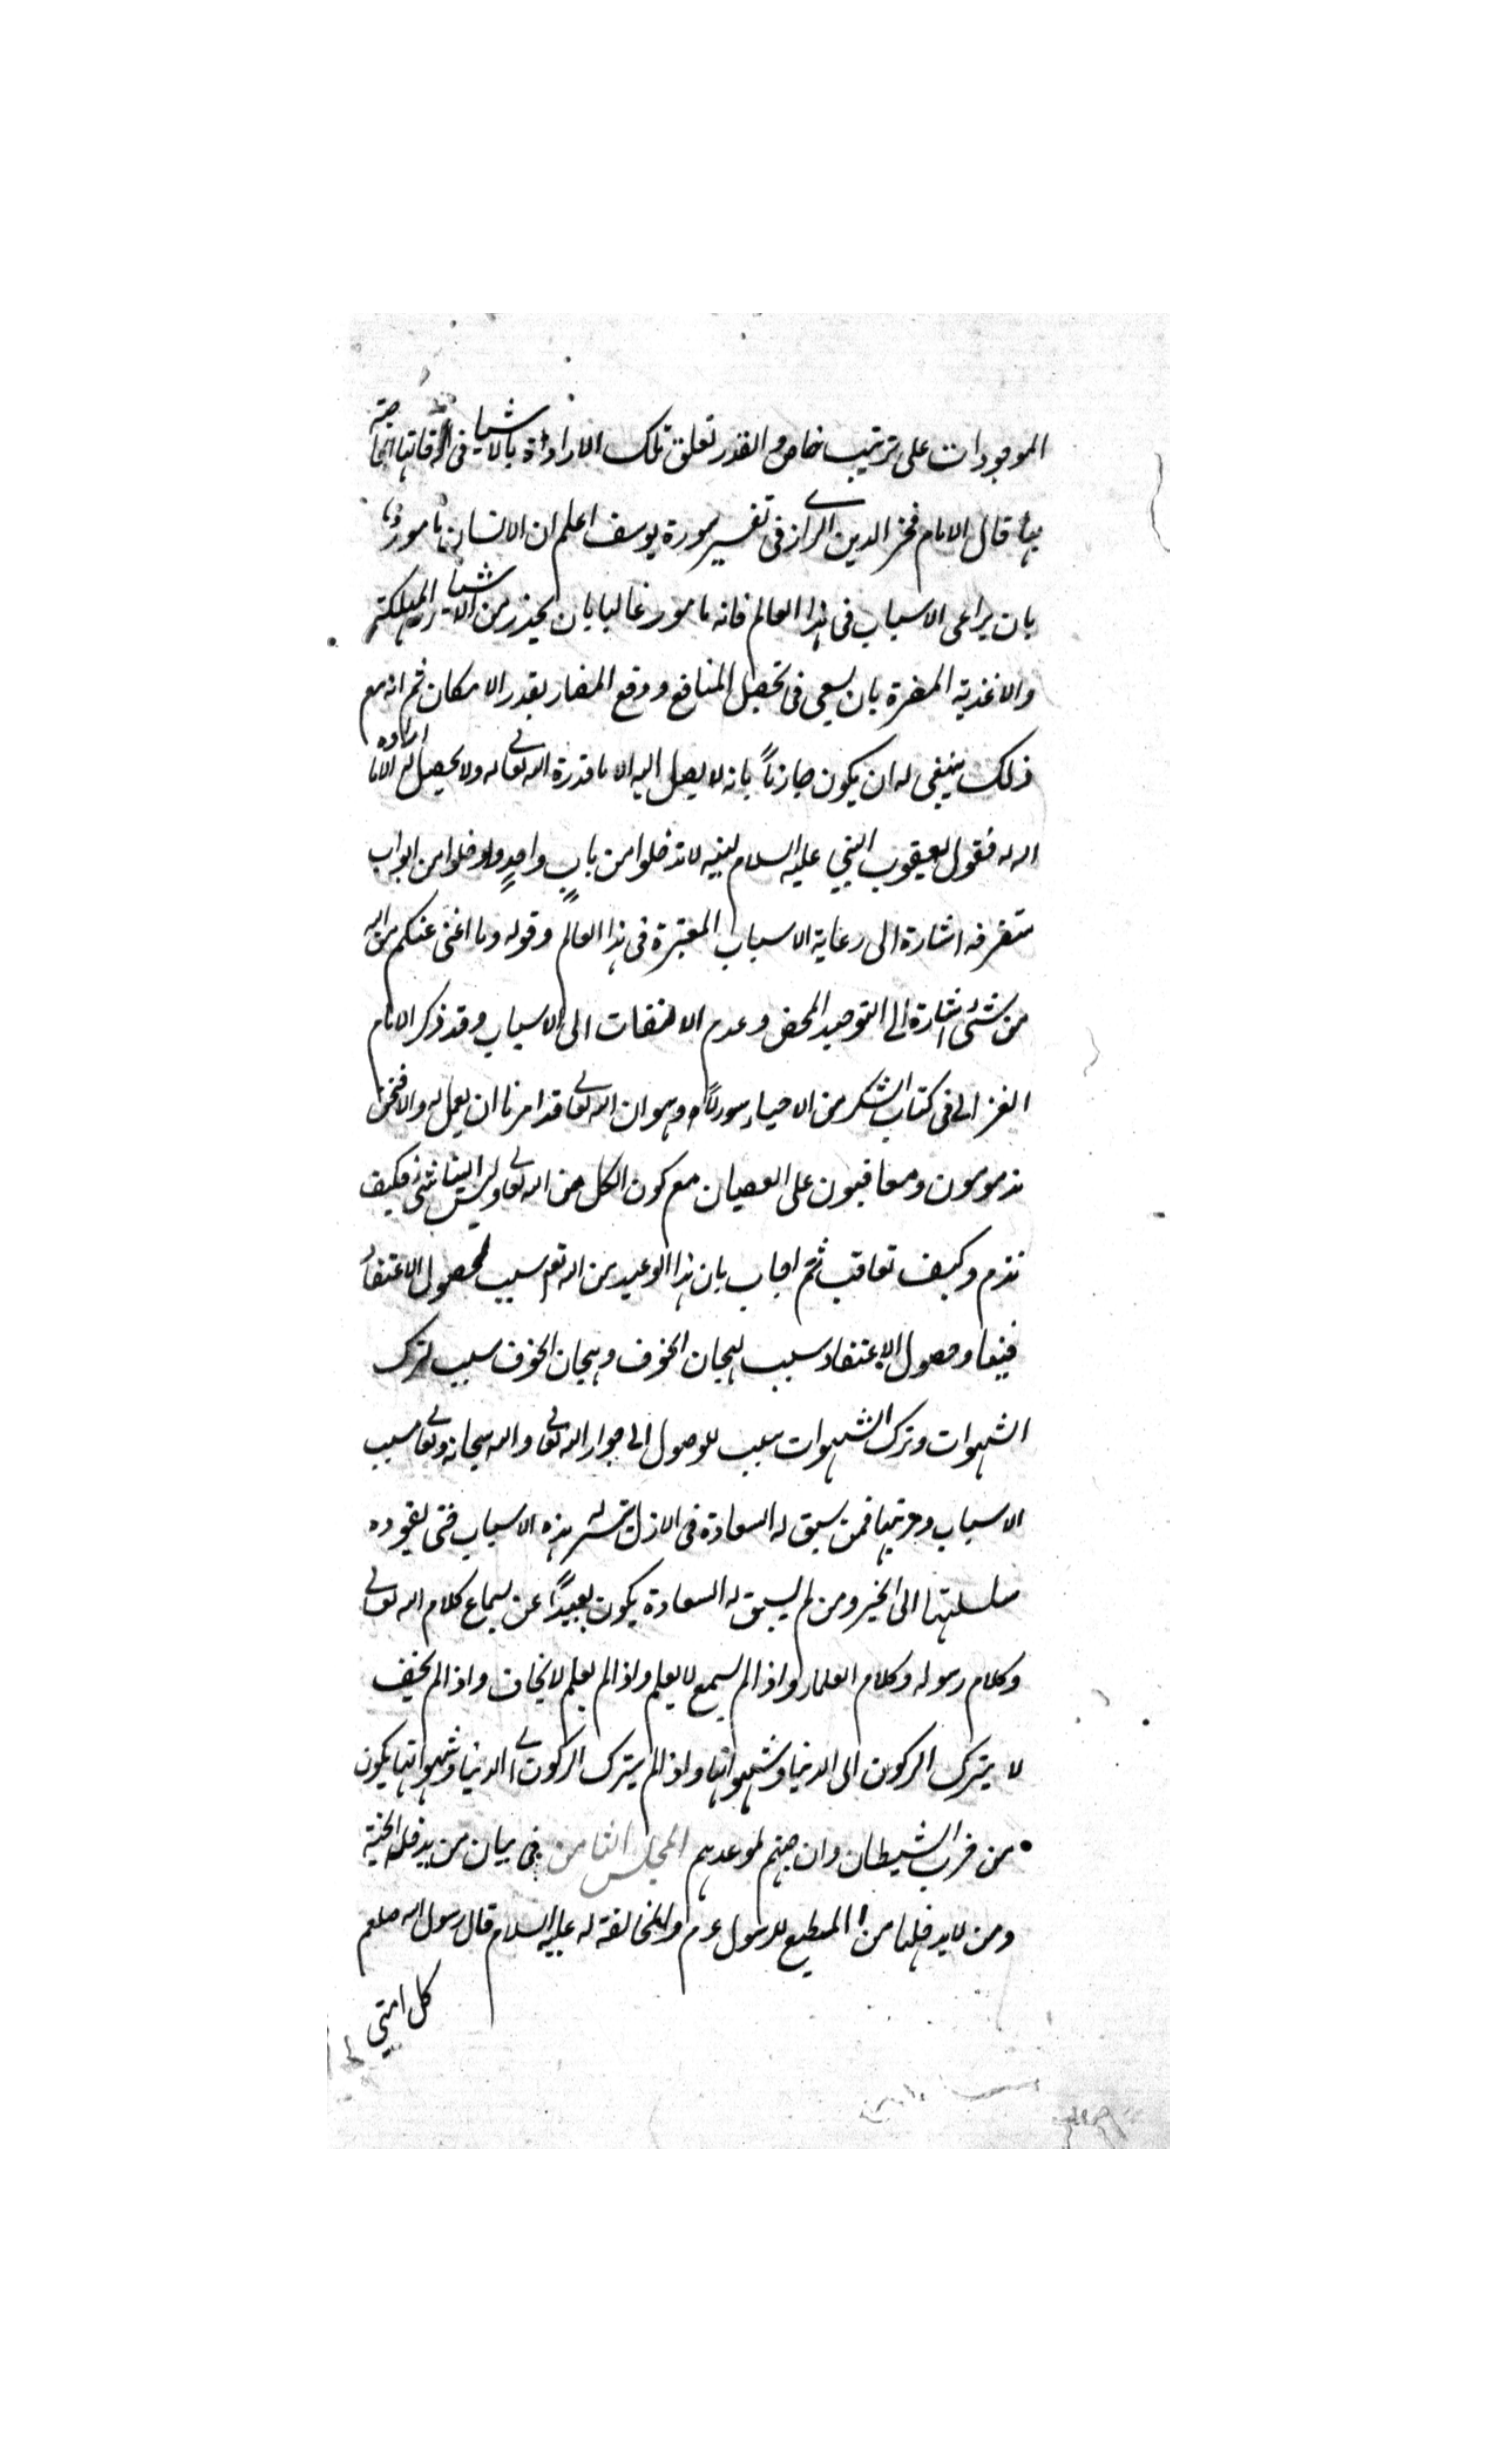 الموجودات على ترتيب خاص والقدر تعلق تلك الارادة بالاشياء فى اوقاتها الخاصة
بها قال الامام فخر الدين الرازى فى تفسير سورة يوسف اعلم ان الانسان مامورا
بان يراعى الاسباب فى هذا العالم فانه مامور غالبا بان يحذر من الاشياء المهلكة
والاغذية المضرة بان يسعى فى تحصيل المنافع ودفع المضار بقدر الامكان ثم انه مع
ذلك ينبغى له ان يكون جازماً بانه لا يصل اليه الا ما قدرة الله تعالى له ولا يحصل له الا ما اراده
الله له فقول يعقوب النبى عليه السلام لبنيه لا تدخلوا من بابٍ واحدٍ وادخلوا من ابواب
متفرقه اشارة الى رعاية الاسباب المعتبرة فى هذا العالم وقوله وما اغنى عنكم من الله
من شئ اشارة الى التوحيد المحض وعدم الالتفات الى الاسباب وقد ذكر الامام
الغزالى فى كتاب الشكر من الاحياء سوراًلا وهو ان الله تعالى قد امرنا ان يعمل له والا فنحن
مذمومون ومعاقبون على العصيان مع كون الكل من الله تعالى وليس الينا شئ فكيف
نذم وكيف نعاقب ثم اجاب بان هذا الوعيد من الله تعم سبب لحصول الاعتقاد
فينا وحصول الاعتقاد سبب لهيجان الخوف وهيجان الخوف سبب لترك
الشهوات وترك الشهوات سبب للوصول الى جوار الله تعالى والله سبحانه وتعالى مسبب
الاسباب ومرتبها فمن سبق له السعادة فى الازل يتسر له هذه الاسباب حتى يقوده
سلسلتها الى الخير ومن لم يسبق له السعادة يكون بعيداً عن سماع كلام الله تعالى
وكلام رسوله وكلام العلماء واذا لم يسمع لا يعلم واذا لم يعلم لا يخاف واذا لم يخف
لا يترك الركون الى الدنيا وشهواتها واذا لم يترك الركون الى الدنيا وشهواتها يكون
من حزب الشيطان وان جهنم لموعدهم المجلس الثامن فى بيان من يدخل الجنة
ومن لا يدخلها من المطيع للرسول عم والمخالفة له عليه السلام قال رسول الله صلعم
كل امتى